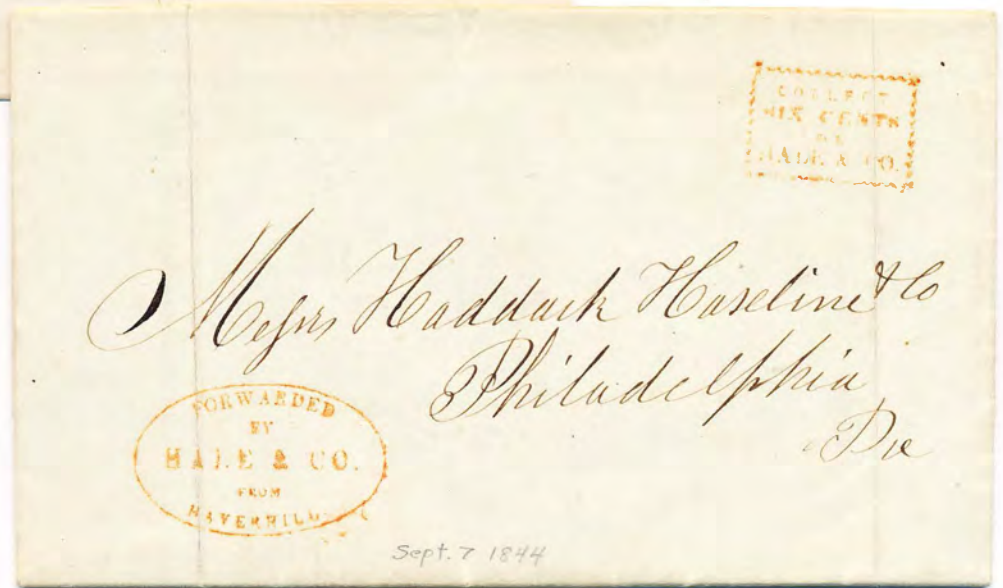 COLLECT
SIX CENTS
FOR
HALE & CO.
Messrs Haddock Haseline & Co
Philadelphia
Pa
FORWARDED
BY
HALE & CO.
FROM
HAVERHILL
Sept. 7 1844